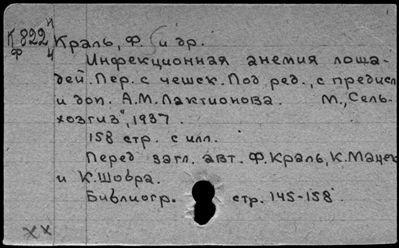 К 822
Ф
Краль, Ф. и др.
Инфекционная анемия лоша-
дей. Пер. с чешск. Под ред., с предисл.
и доп. А.М. Лактионова. М., „Сель-
хозгиз", 1937.
158 стр. с илл.
Перед загл. авт. Ф. Краль, К. Мацек
и К. Шовра.
Библиогр. стр. 145-158
xx